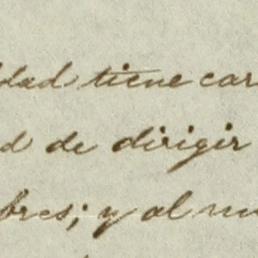 dad tiene car
d de dirigir
bres; y al m